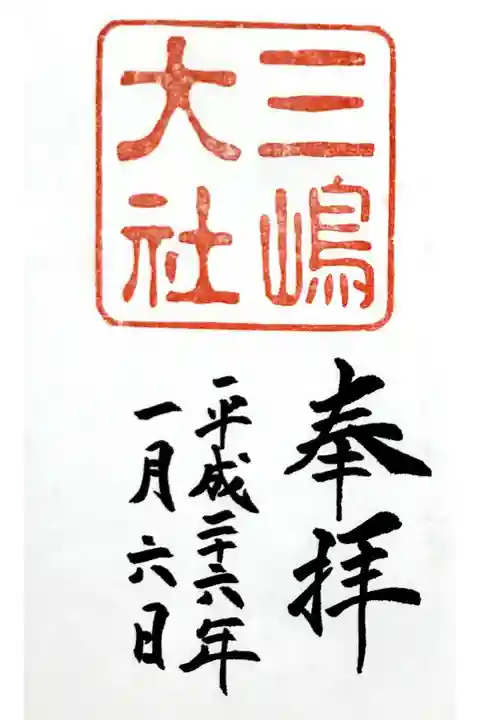 三嶋
大社
奉拝
平成二十六年
一月六日